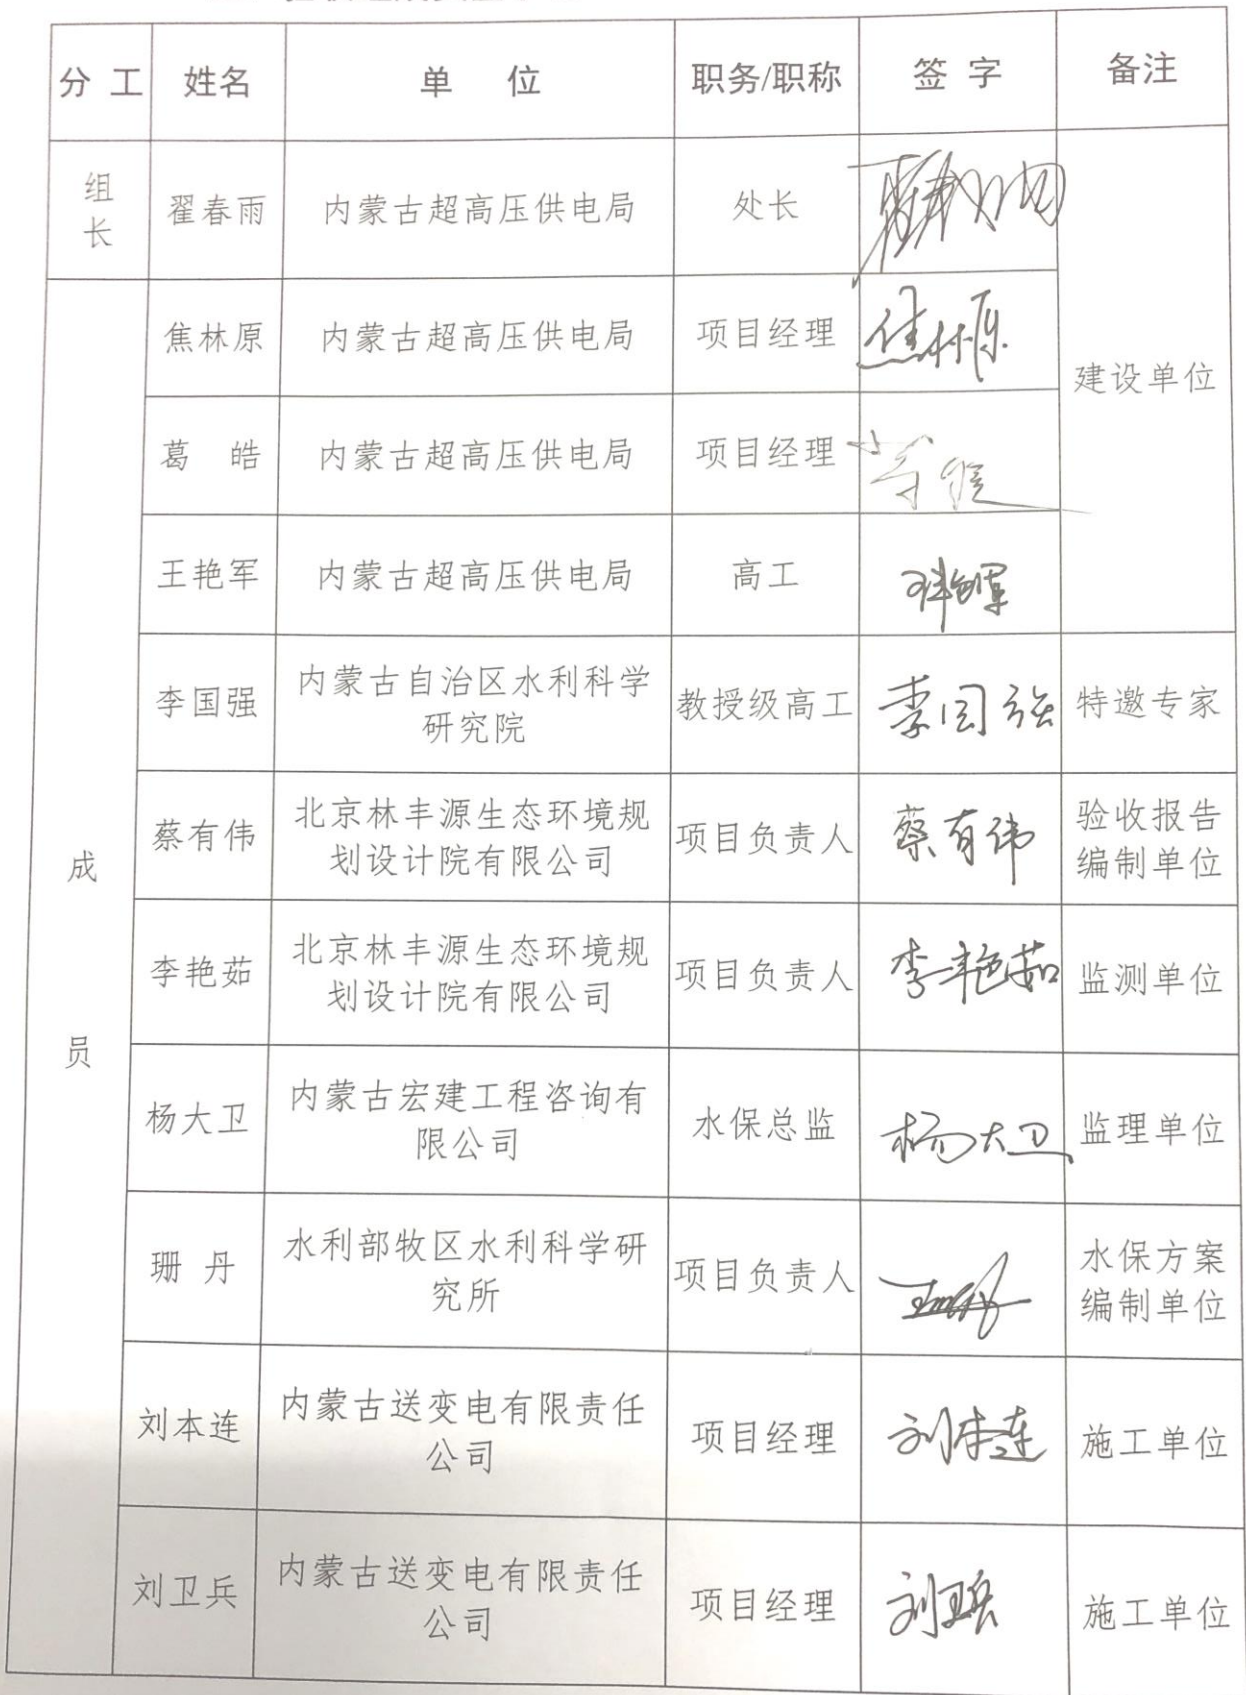 分 工 姓名 单 位 职务/职称 签 字 备注
组
长
翟春雨 内蒙古超高压供电局 处长
焦林原 内蒙古超高压供电局 项目经理 焦林原
建设单位
葛 皓 内蒙古超高压供电局 项目经理
王艳军 内蒙古超高压供电局 高工 王艳军
成
员
李国强 内蒙古自治区水利科学
研究院
教授级高工 李国强 特邀专家
蔡有伟 北京林丰源生态环境规
划设计院有限公司
项目负责人 蔡有伟 验收报告
编制单位
李艳茹 北京林丰源生态环境规
划设计院有限公司
项目负责人 李艳茹 监测单位
杨大卫 内蒙古宏建工程咨询有
限公司
水保总监 杨大卫 监理单位
珊 丹 水利部牧区水利科学研
究所
项目负责人 水保方案
编制单位
刘本连 内蒙古送变电有限责任
公司
项目经理 刘本连 施工单位
刘卫兵 内蒙古送变电有限责任
公司
项目经理 刘卫兵 施工单位